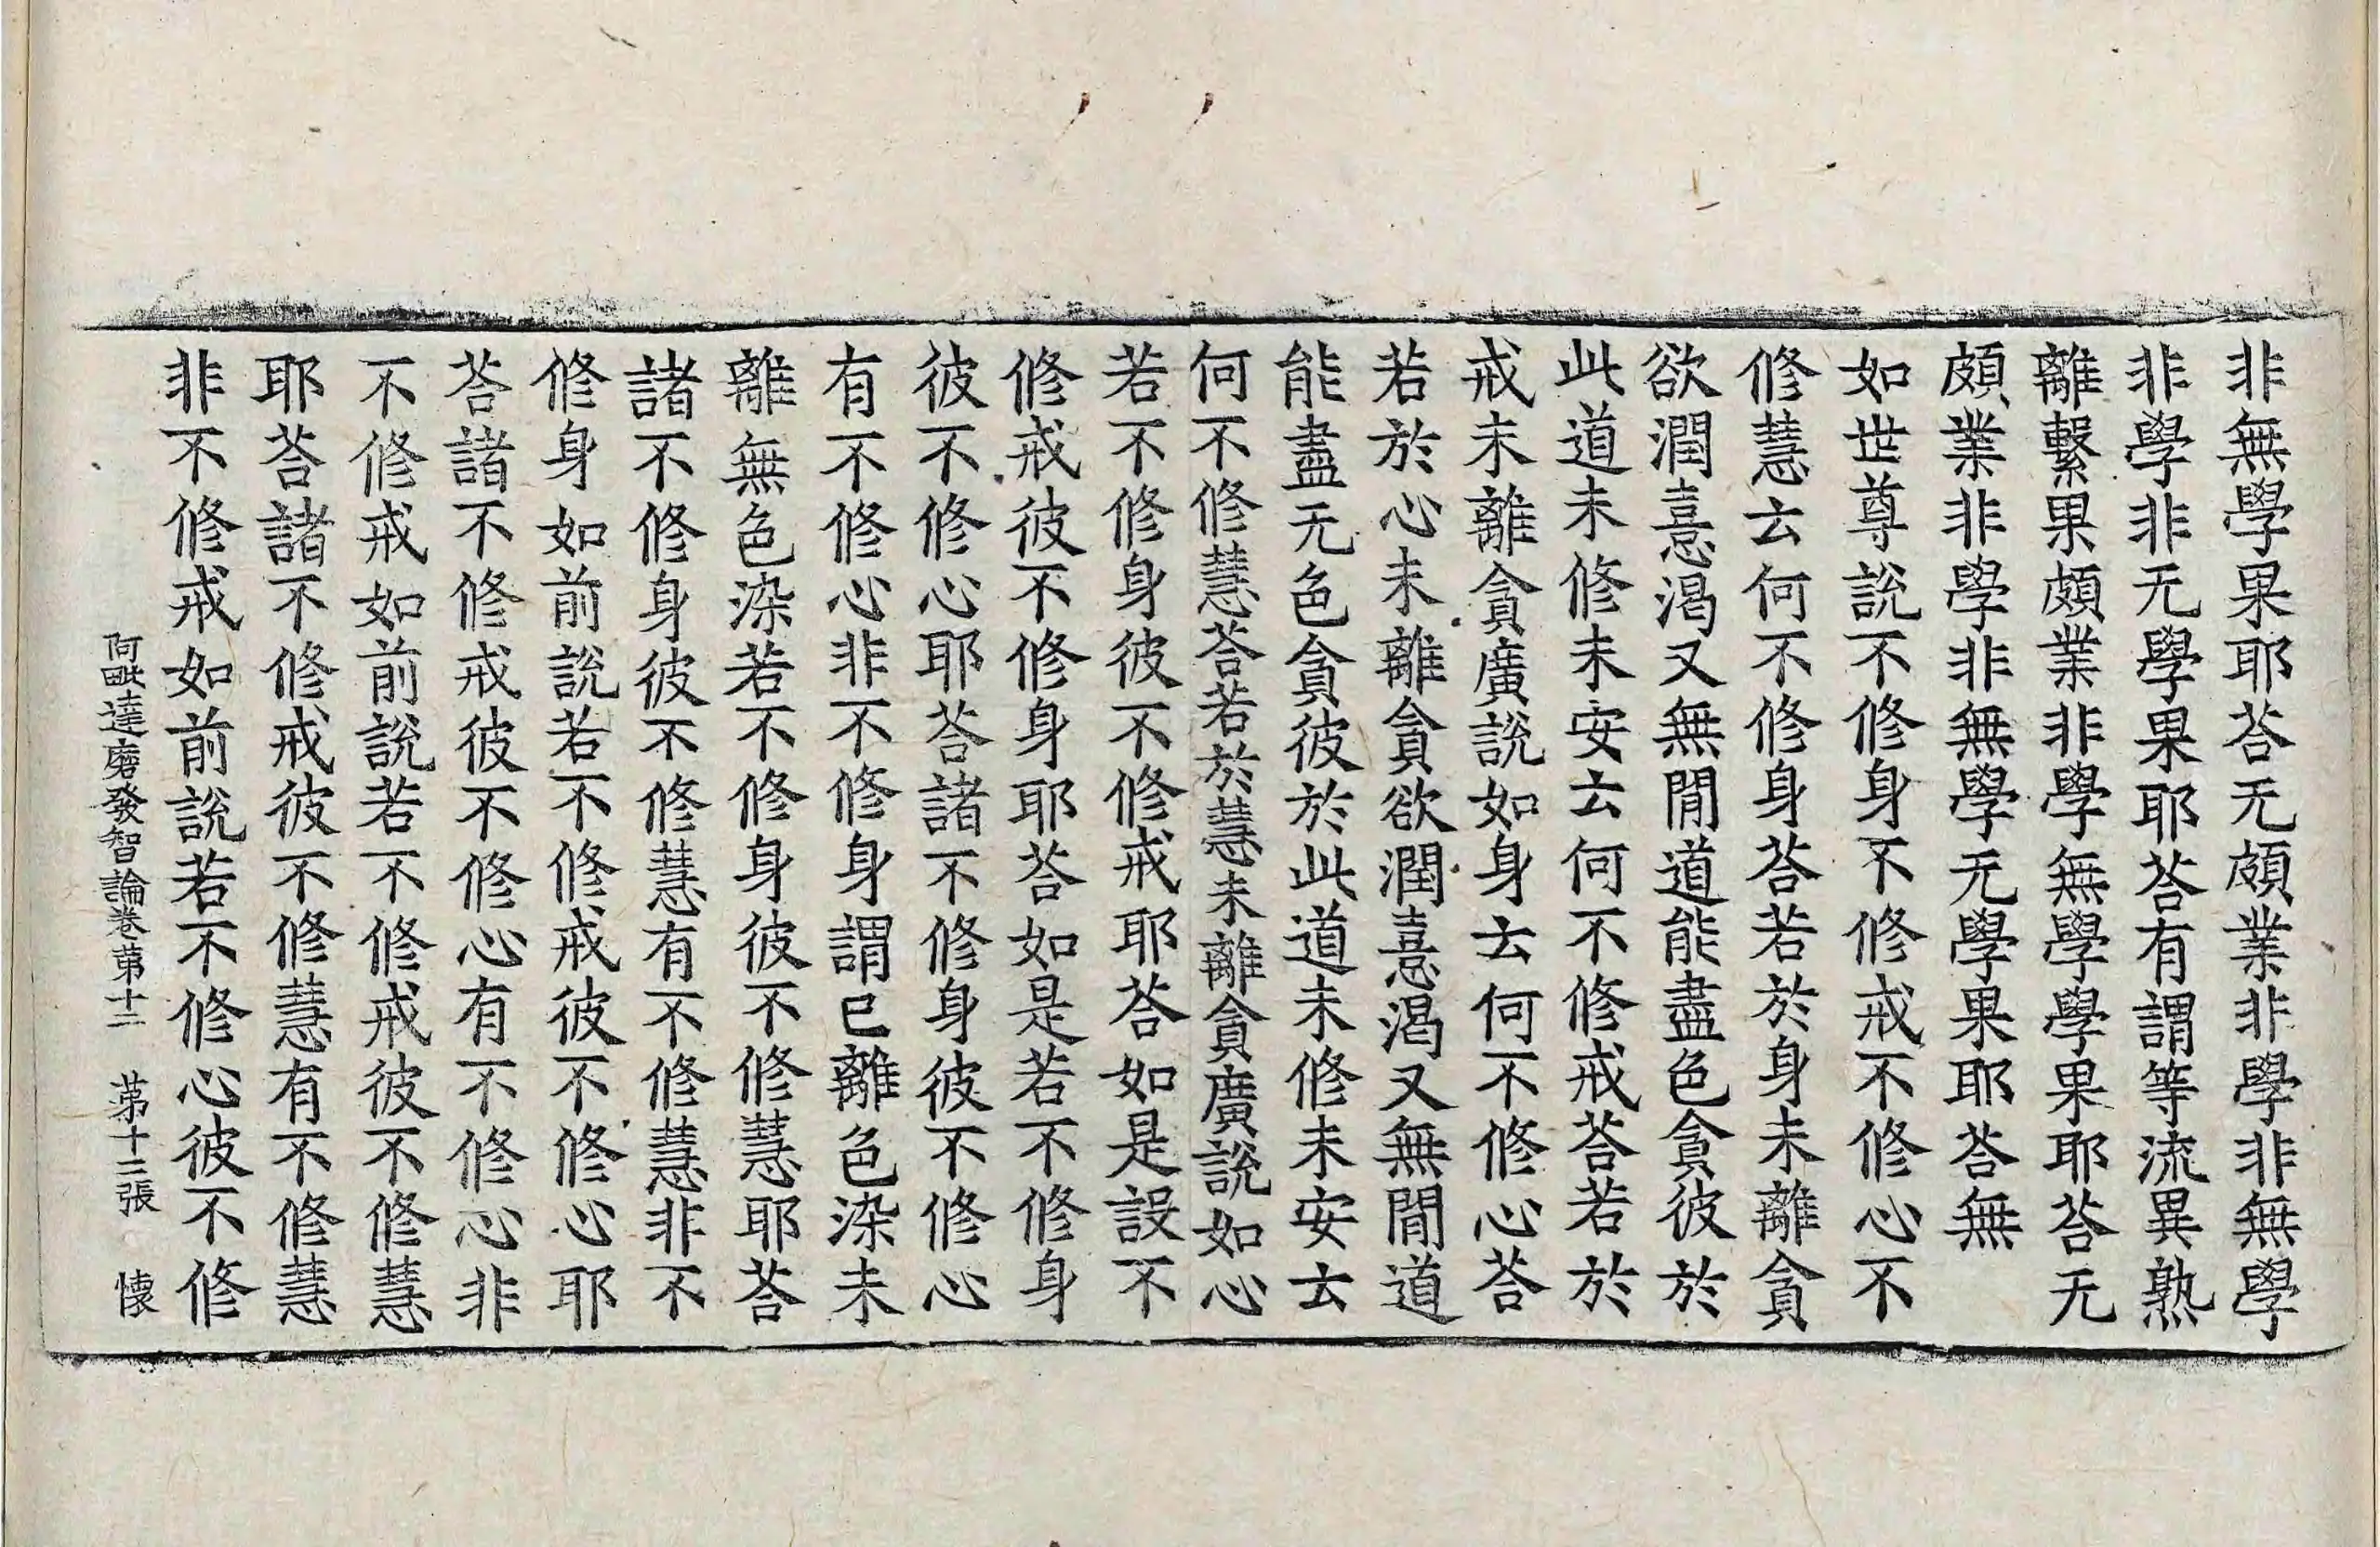 非無學果耶荅无頗業非學非無學
非學非无學果耶荅有謂等流異熟
離繫果頗業非學非無學學果耶荅无
頗業非學非無學无學果耶荅無
如世尊說不修身不修戒不修心不
修慧云何不修身荅若於身未離貪
欲潤憙渴又無閒道能盡色貪彼於
此道未修未安云何不修戒荅若於
戒未離貪廣說如身云何不修心荅
若於心未離貪欲潤憙渴又無閒道
能盡无色貪彼於此道未修未安云
何不修慧荅若於慧未離貪廣說如心
若不修身彼不修戒耶荅如是設不
修戒彼不修身耶荅如是若不修身
彼不修心耶荅諸不修身彼不修心
有不修心非不修身謂已離色染未
離無色染若不修身彼不修慧耶荅
諸不修身彼不修慧有不修慧非不
修身如前說若不修戒彼不修心耶
荅諸不修戒彼不修心有不修心非
不修戒如前說若不修戒彼不修慧
耶荅諸不修戒彼不修慧有不修慧
非不修戒如前說若不修心彼不修
阿毗達磨發智論卷苐十二 苐十三張 懐